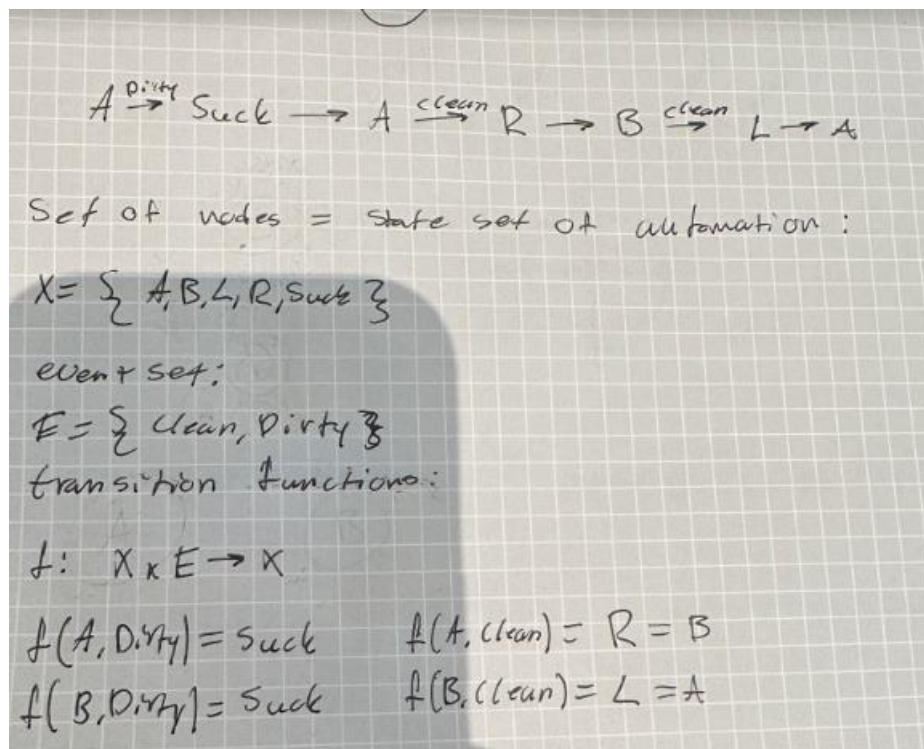 A Dirty→ Suck → A clean→ R → B clean→ L → A
Set of nodes = state set of automation:
X = { A, B, L, R, Suck }
event set:
E = { Clean, Dirty }
transition functions:
f: X x E → X
f(A, Dirty) = Suck f(A, Clean) = R = B
f(B, Dirty) = Suck f(B, Clean) = L = A